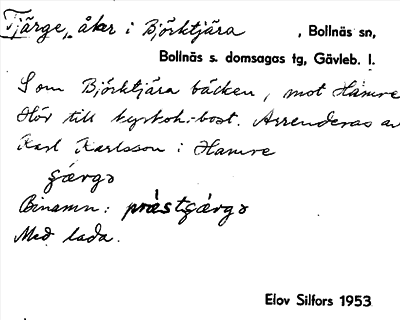 Tjärge, åker i Björktjära , Bollnäs sn,
Bollnäs s. domsagas tg, Gävleb. l.
I om Björktjära bäcken, mot Hamre
Hör till kyrkoh.-bost. Arrenderas av
Karl Karlsson i Hamre
gærgə
Binamn: prästgärgə
Med lada.
Elov Silfors 1953